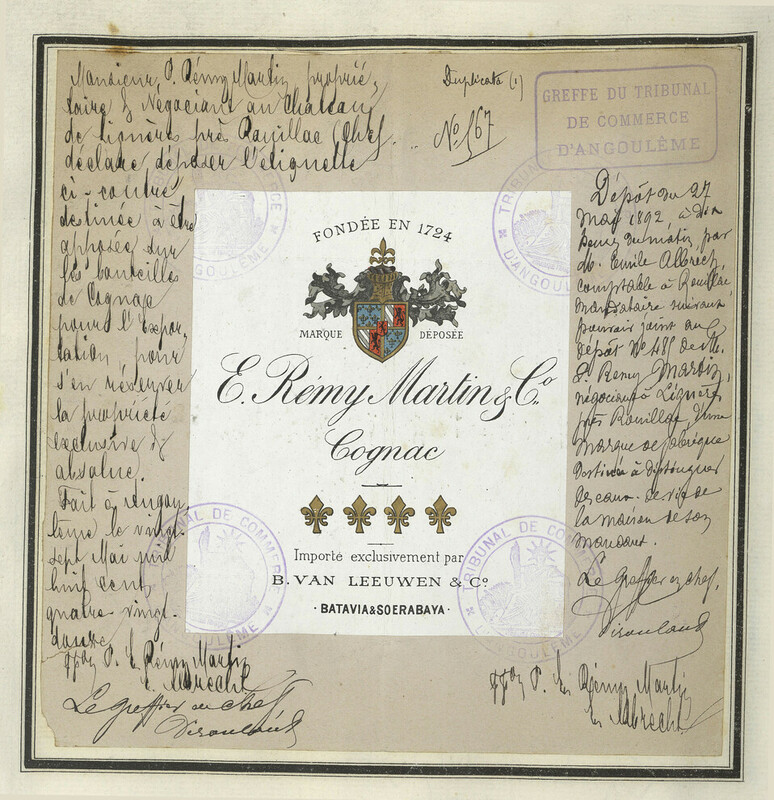 Monsieur P. Rémy Martin proprié-
taire & Négociant au Château
de Lignères près Rouillac (Chte)
déclare déposer l'étiquette
ci-contre
destinée à être
apposée sur
les bouteilles
de Cognac
pour l'Expor-
tation pour
s'en réserver
la propriété
exclusive &
absolue.
Fait à Angou-
lême le vingt-
sept Mai mil
huit cent
quatre vingt-
douze
P. E. Rémy Martin
E. Albrecht
Le Greffier en chef
Duplicata (1)
No. 167
GREFFE DU TRIBUNAL
DE COMMERCE
D'ANGOULÊME
FONDÉE EN 1724
MARQUE DÉPOSÉE
E. Rémy Martin & Co.
Cognac
Importé exclusivement par
B. VAN LEEUWEN & Co.
· BATAVIA & SOERABAYA ·
Dépôt du 27
May 1892 à dix
heures du matin, par
M. Emile Albrecht
comptable à Rouillac
mandataire suivant
pouvoir joint au
dépôt No 485 de M.
E. Remy Martin,
négociant à Lignères
près Rouillac d'une
marque de fabrique
destinée à distinguer
les eaux-de-vie de
la maison de son
mandant.
Le Greffier en chef,
P. E. Rémy Martin
E. Albrecht
TRIBUNAL DE COMMERCE
D'ANGOULÊME
TRIBUNAL DE COMMERCE
D'ANGOULÊME
TRIBUNAL DE COMMERCE
D'ANGOULÊME
TRIBUNAL DE COMMERCE
D'ANGOULÊME